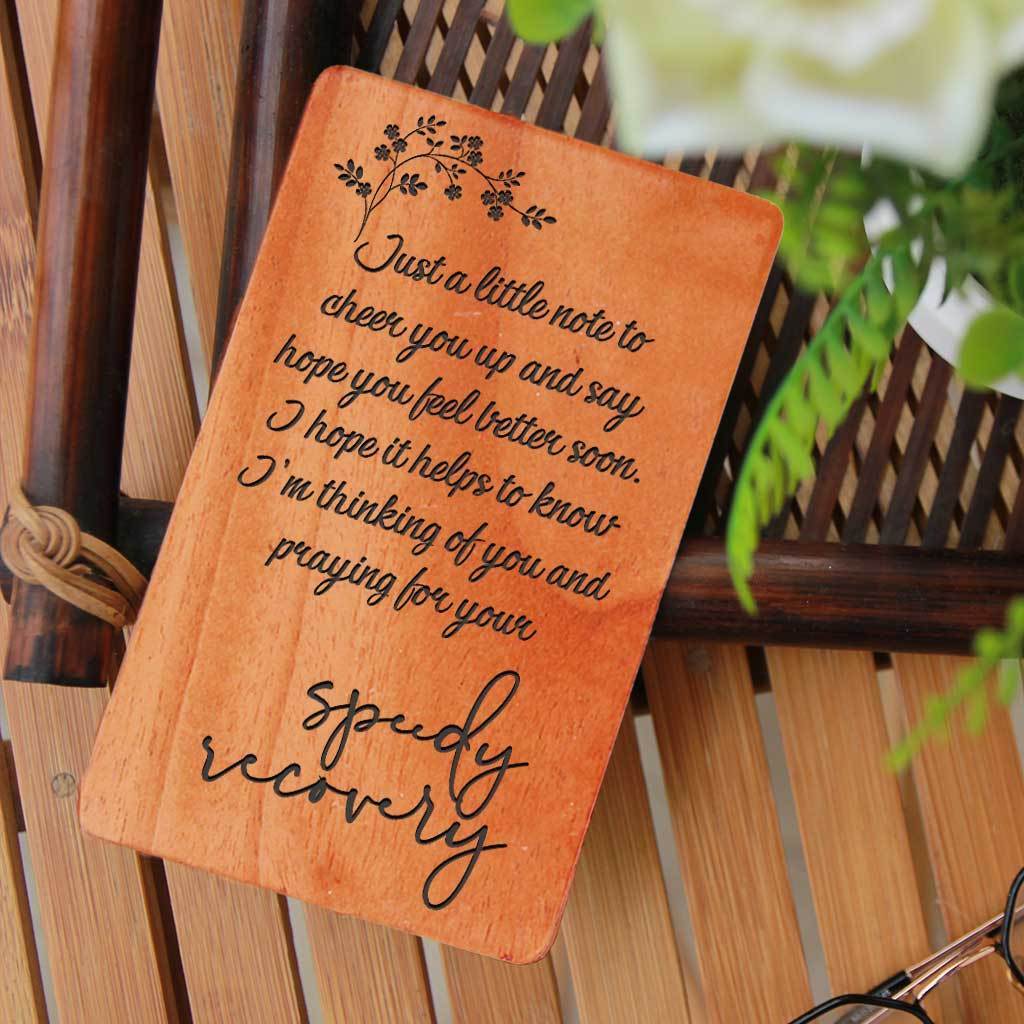 Just a little note to
cheer you up and say
hope you feel better soon.
I hope it helps to know
I'm thinking of you and
praying for your
speedy
recovery